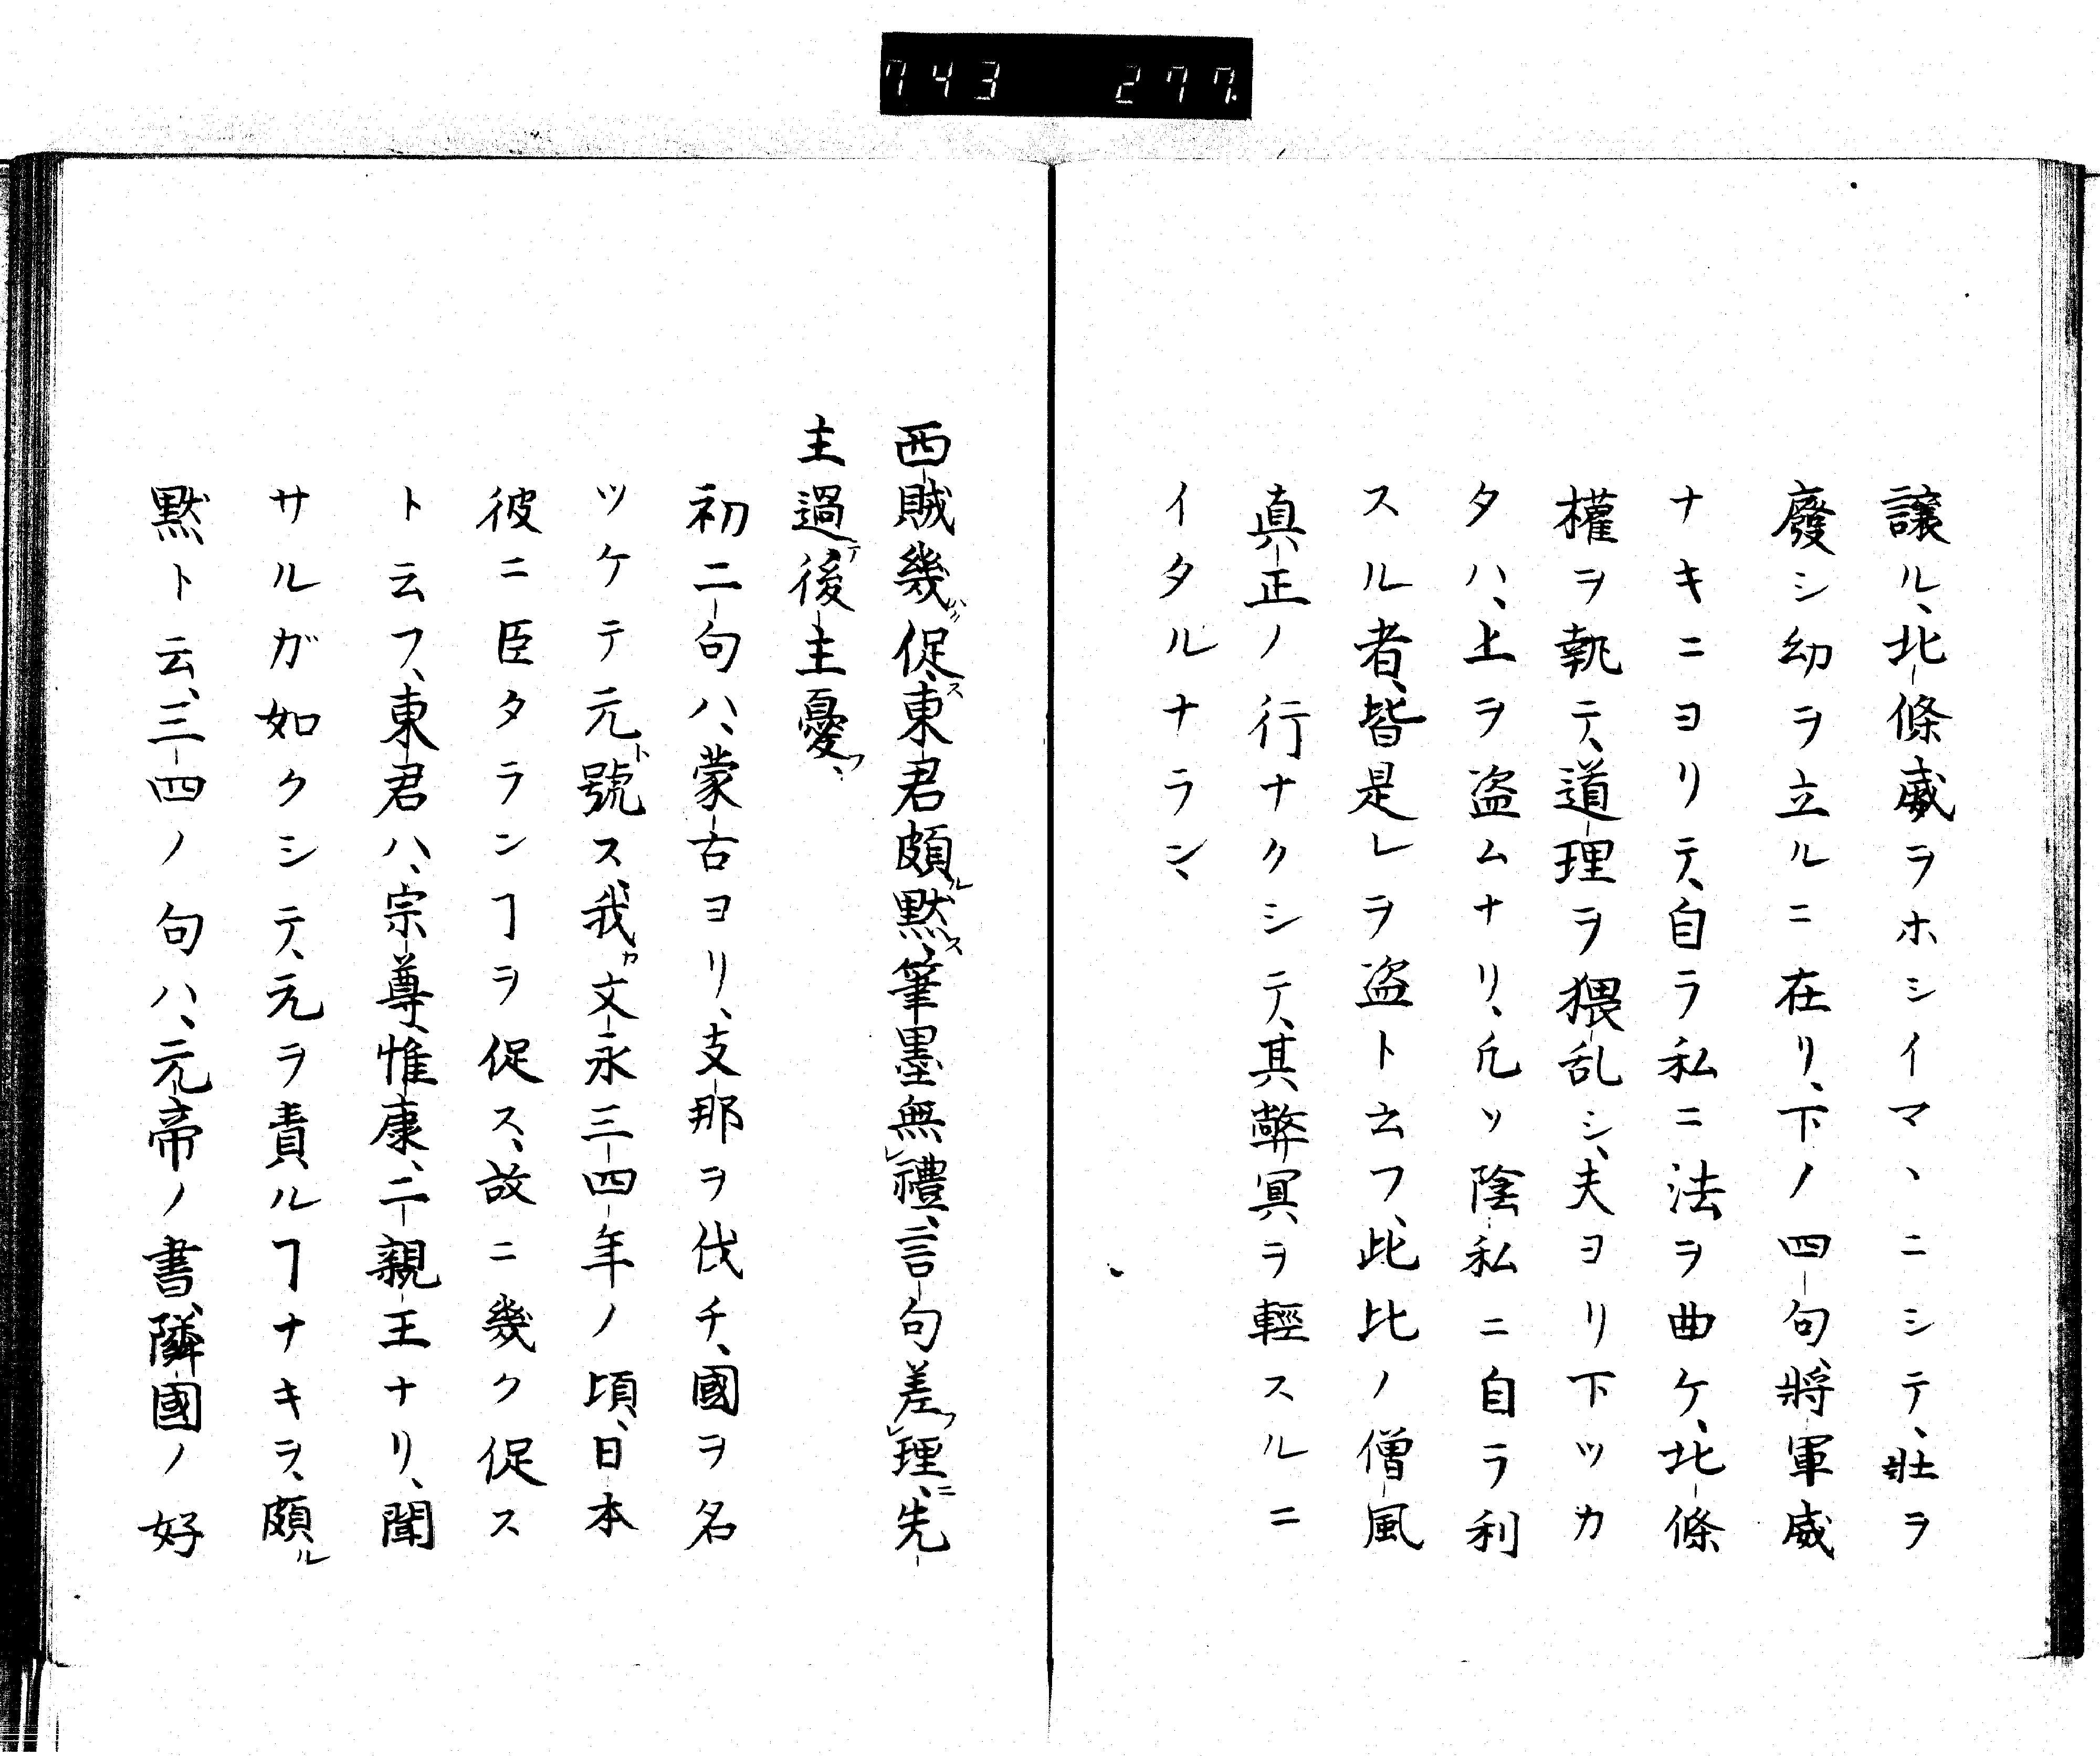 743 277.
譲ル、北條威ヲホシイマヽニシテ、壯ヲ
廢シ幼ヲ立ルニ在リ、下ノ四句、將軍威
ナキニヨリテ、自ラ私ニ法ヲ曲ケ、北條
權ヲ執テ、道理ヲ猥乱シ、夫ヨリ下ツカ
タハ、上ヲ盗ムナリ、凢ソ陰私ニ自ラ利
スル者、皆是レヲ盗ト云フ、此比ノ僧風
真正ノ行ナクシテ、其弊冥ヲ輕スルニ
イタルナラン、
西賊幾ハク促ス、東君頗ル黙ス、筆墨無レ禮、言句差フレ理ニ、先
主過テ後主憂フ、
初二句ハ、蒙古ヨリ、支那ヲ伐チ、國ヲ名
ツケテ元ト號ス、我カ文永三四年ノ頃、日本
彼ニ臣タランヿヲ促ス、故ニ幾ク促ス
ト云フ、東君ハ、宗尊、惟康、二親王ナリ、聞
サルガ如クシテ、元ヲ責ルヿナキヲ、頗ル
黙ト云、三四ノ句ハ、元帝ノ書、隣國ノ好